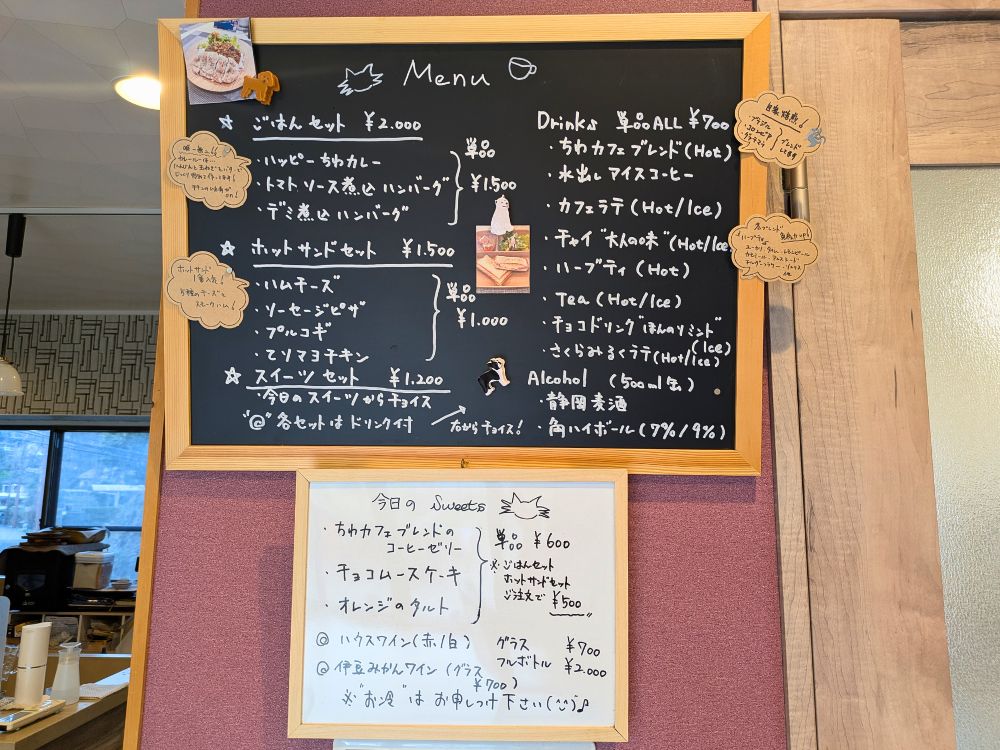 Menu
☆ ごはんセット ¥2.000
・ハッピーちわカレー
・トマトソース煮込ハンバーグ
・デミ煮込ハンバーグ
単品
¥1.500
☆ ホットサンドセット ¥1.500
・ハムチーズ
・ソーセージピザ
・プルコギ
・てりマヨチキン
単品
¥1.000
☆ スイーツセット ¥1.200
・今日のスイーツからチョイス
"@" 各セットはドリンク付
右からチョイス!
Drinks 単品ALL ¥700
・ちわカフェブレンド(Hot)
・水出しアイスコーヒー
・カフェラテ(Hot/Ice)
・チャイ"大人の味"(Hot/Ice
・ハーブティ(Hot)
・Tea(Hot/Ice)
・チョコドリンク"ほんのりミント"
(Ice)
・さくらみるくラテ(Hot/Ice)
Alcohol (500ml缶)
・静岡麦酒
・角ハイボール(7%/9%)
唯一無二!!
カレールー
ホットサンド
1番人気!
チーズと
スモークハム!
自家焙煎!
ブラジル
コロンビア
グァテマラ
ブレンド
してます
ハーブティは
今日の Sweets
・ちわカフェブレンドの
コーヒーゼリー
・チョコムースケーキ
・オレンジのタルト
単品 ¥600
※ごはんセット
ホットサンドセット
ご注文で
¥500
@ ハウスワイン(赤/白) グラス ¥700
フルボトル ¥2.000
@ 伊豆みかんワイン(グラス
¥700)
※"お冷"はお申しつけ下さい(^^)♪